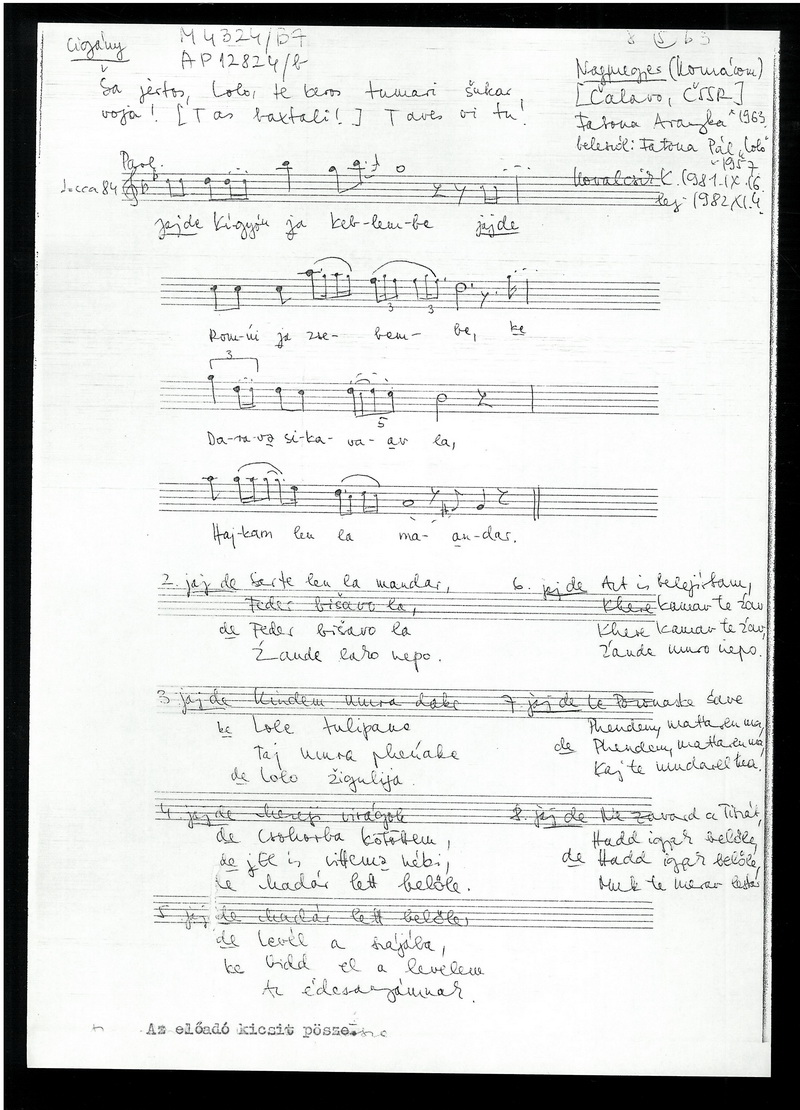 Cigány
M 4324/B7
AP 12824/b
Ša jertos, Lolo, te beros tumari šukar
voja! [T as baxtali!] T aves vi tu!
Nagymegyes (Komárom)
[Čalavo, ČSSR]
1963
belesról: Fatona Pál "Lolo"
1957
Kovalcsik K. 1981.IX.16.
lej. 1982.XI.4.
jajde Kígyóu ja keb-lem-be jajde
Rom-ńi ja zse- bem- be, ke
3
3
3
Da-ra-va si-ka- va- av la,
5
Haj-kam len la ma- an-dar.
2. jaj de Šerte len la mandar,
Feder bišavo la,
de Feder bišavo la
Žande lako nepo.
3. jaj de Kindem mura dake
ke Lole tulipano
Taj mura pheńake
de Lolo žigulija.
4. jaj de mezeji virágok
de Csokorba kötöttem,
de jEl is vittemə nébi,
de madár lett belőle.
5. jaj de madár lett belőle,
de Levél a szájába,
ke Vidd el a levelem
Az édesanyámnak.
6. jaj de Azt is beleírtam,
Khere kamav te žav
Khere kamav te žav,
Žande muro nepo.
7. jaj de le šave
Phendem, mattarén ma,
de Phendem, mattarén ma,
Kaj te mudarel ma.
8. jaj de Ne zavard a Tiszát,
Hadd igyak belőle,
de Hadd igyak belőle,
Muk te merav
Az előadó kicsit pösze.